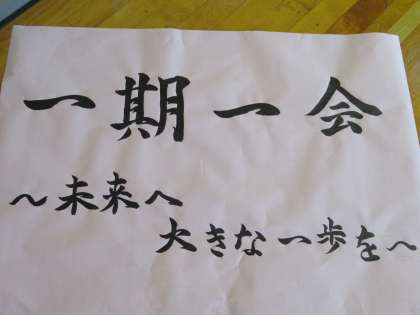 一期一会
～未来へ
大きな一歩を～